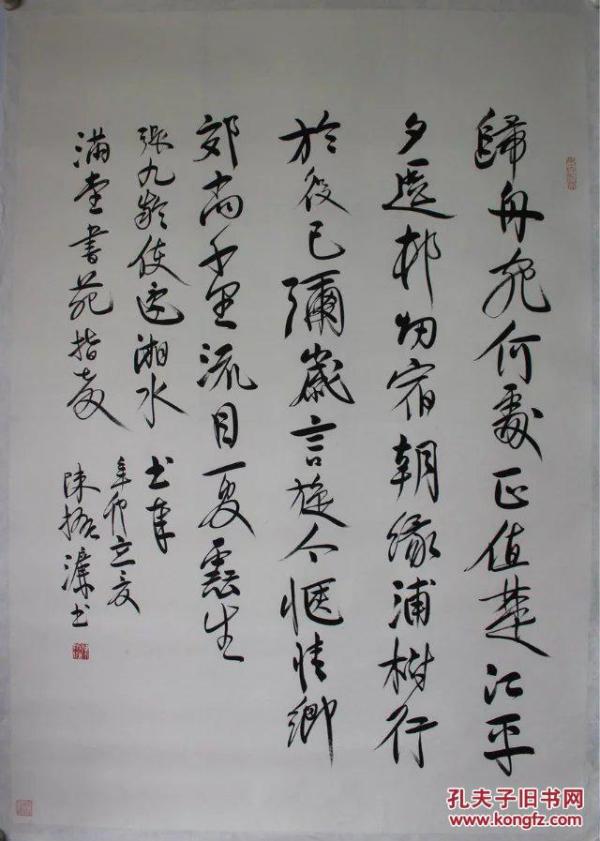 歸舟宛何處正值楚江平
夕邨宿朝緣浦树行
於役已彌歲言旋今愜情鄉
郊尚千里流目夏雲生
張九齡使還湘水 书奉
滿堂書苑指教
辛卯立夏
陳振濂书
孔夫子旧书网
www.kongfz.com